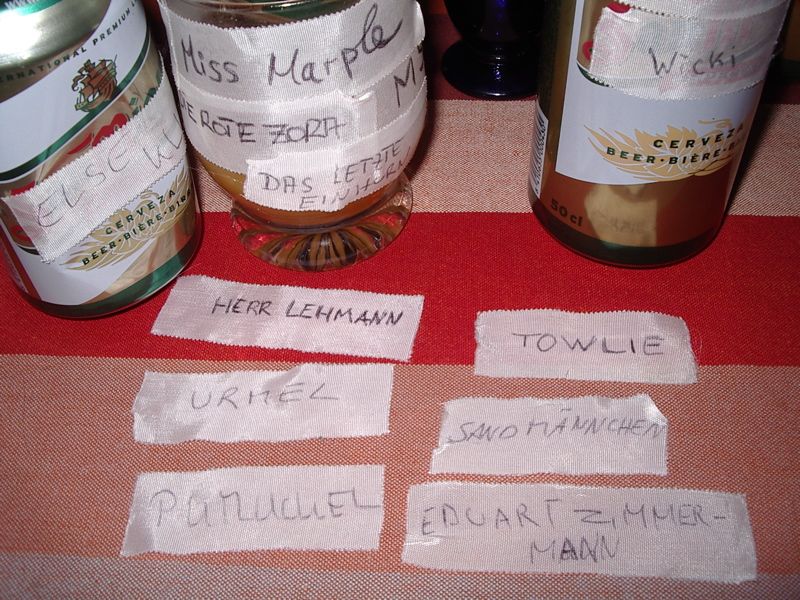 INTERNATIONAL PREMIUM
ELSE K
CERVEZA
BEER·BIÈRE·BI
Miss Marple
M
ROTE ZORA
DAS LETZTE
EINHORN
Wicki
CERVEZA
BEER·BIÈRE·B
50 cl
HERR LEHMANN
TOWLIE
URMEL
SANDMÄNNCHEN
PUMUCKEL
EDUART ZIMMER-
MANN